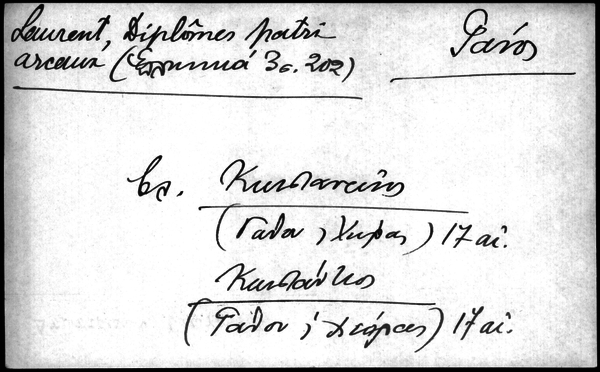 Laurent, Diplômes patri
arcaux (Ἑλληνικά 3 σ. 202)
Γάνος
βλ. Κωνσταντῖνος
(Γάνου, Χώρας) 17 αἰ.
(Γάνου, Χώρας) 17 αἰ.